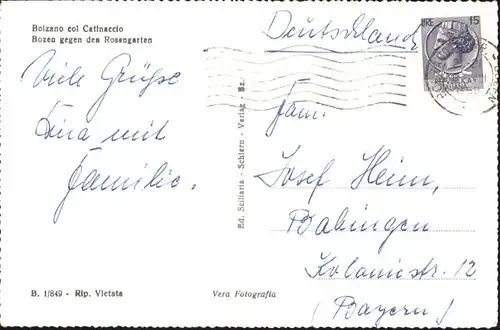 Bolzano col Catinaccio
Bozen gegen den Rosengarten
Deutschland
LIRE 15
Viele Grüße
mit
Familie.
Fam.
Josef Heim,
Babingen
Koloniestr. 12
(Bayern)
Ed. Sciliaria - Schlern - Verlag - Bz.
B. 1/849 - Rip. Vietata
Vera Fotografia